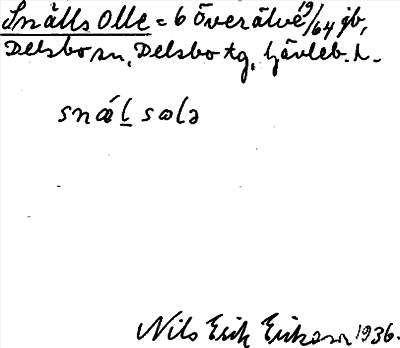 Snälls Olle = 6 Överälve 19/64 jb,
Delsbo sn, Delsbo tg, Gävleb. l.
snǽl̲ sɷlə
Nils Erik Erikson 1936.